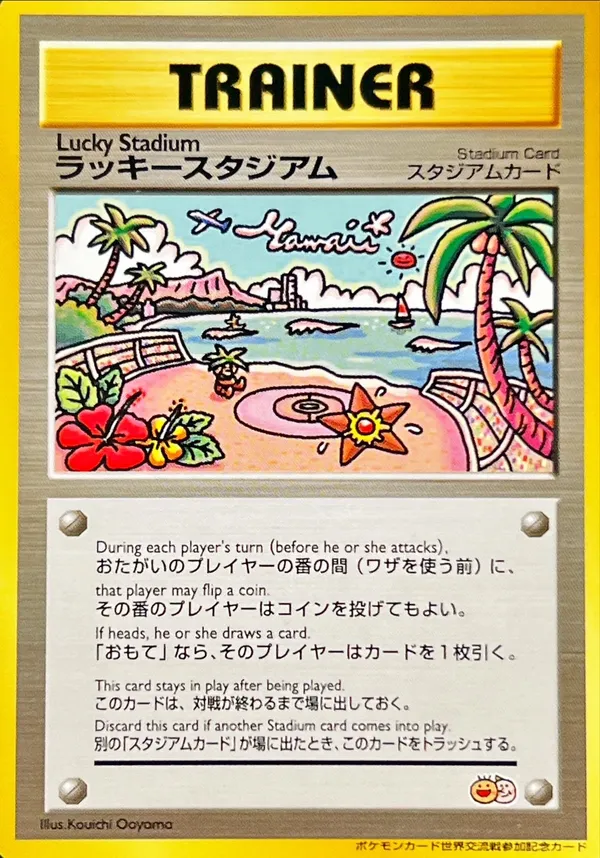 TRAINER
Lucky Stadium
ラッキースタジアム
Stadium Card
スタジアムカード
Hawaii
During each player's turn (before he or she attacks),
おたがいのプレイヤーの番の間（ワザを使う前）に、
that player may flip a coin.
その番のプレイヤーはコインを投げてもよい。
If heads, he or she draws a card.
「おもて」なら、そのプレイヤーはカードを1枚引く。
This card stays in play after being played.
このカードは、対戦が終わるまで場に出しておく。
Discard this card if another Stadium card comes into play.
別の「スタジアムカード」が場に出たとき、このカードをトラッシュする。
Illus.Kouichi Ooyama
ポケモンカード世界交流戦参加記念カード